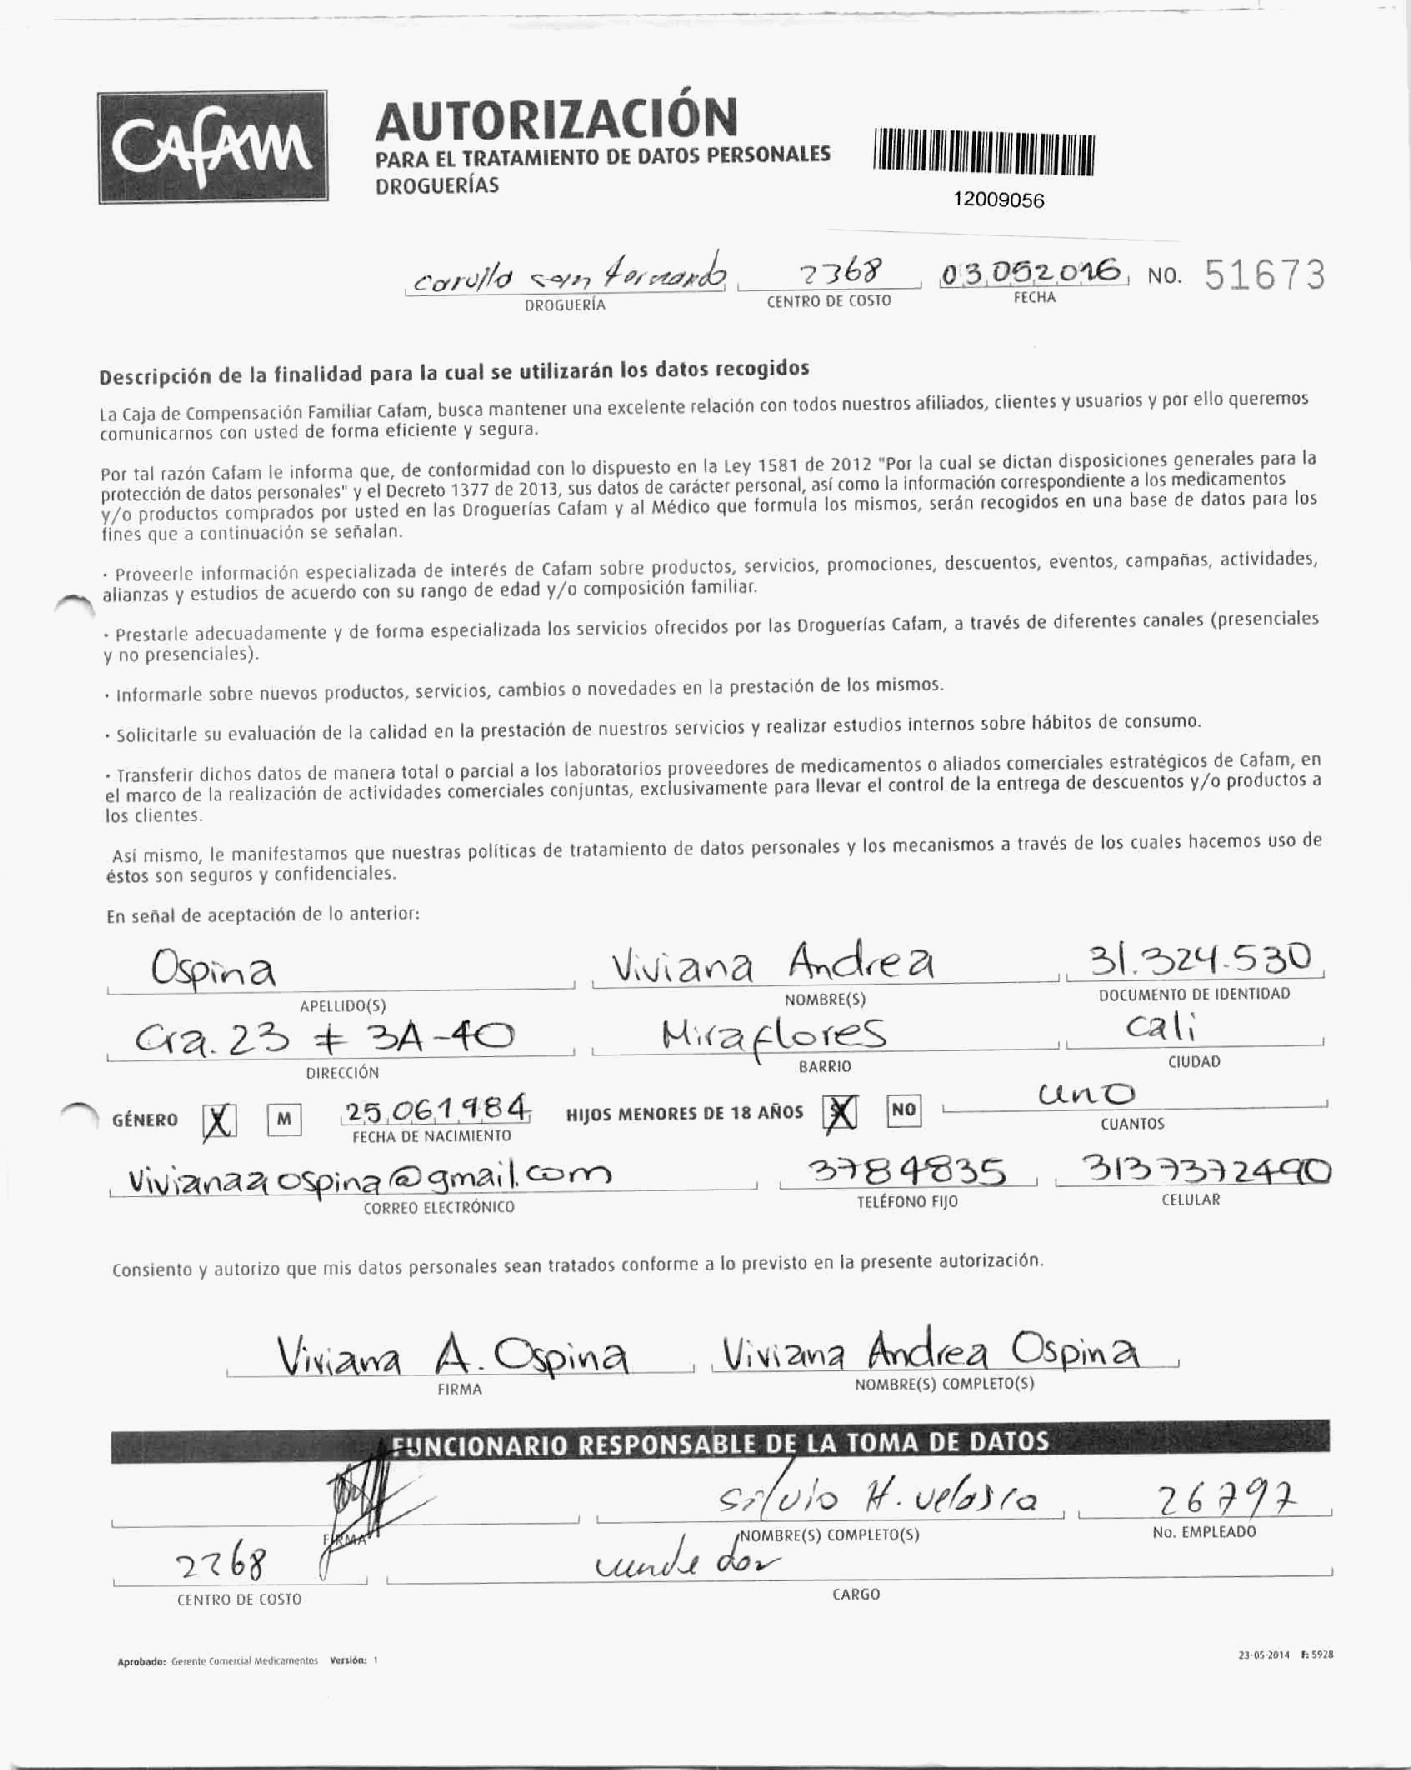 CAFAM
AUTORIZACIÓN
PARA EL TRATAMIENTO DE DATOS PERSONALES
DROGUERÍAS
12009056
carulla san fernando 2368 03.05.2016 NO. 51673
DROGUERÍA CENTRO DE COSTO FECHA
Descripción de la finalidad para la cual se utilizarán los datos recogidos
La Caja de Compensación Familiar Cafam, busca mantener una excelente relación con todos nuestros afiliados, clientes y usuarios y por ello queremos
comunicarnos con usted de forma eficiente y segura.
Por tal razón Cafam le informa que, de conformidad con lo dispuesto en la Ley 1581 de 2012 "Por la cual se dictan disposiciones generales para la
protección de datos personales" y el Decreto 1377 de 2013, sus datos de carácter personal, así como la información correspondiente a los medicamentos
y/o productos comprados por usted en las Droguerías Cafam y al Médico que formula los mismos, serán recogidos en una base de datos para los
fines que a continuación se señalan.
· Proveerle información especializada de interés de Cafam sobre productos, servicios, promociones, descuentos, eventos, campañas, actividades,
alianzas y estudios de acuerdo con su rango de edad y/o composición familiar.
· Prestarle adecuadamente y de forma especializada los servicios ofrecidos por las Droguerías Cafam, a través de diferentes canales (presenciales
y no presenciales).
· Informarle sobre nuevos productos, servicios, cambios o novedades en la prestación de los mismos.
· Solicitarle su evaluación de la calidad en la prestación de nuestros servicios y realizar estudios internos sobre hábitos de consumo.
· Transferir dichos datos de manera total o parcial a los laboratorios proveedores de medicamentos o aliados comerciales estratégicos de Cafam, en
el marco de la realización de actividades comerciales conjuntas, exclusivamente para llevar el control de la entrega de descuentos y/o productos a
los clientes.
Así mismo, le manifestamos que nuestras políticas de tratamiento de datos personales y los mecanismos a través de los cuales hacemos uso de
éstos son seguros y confidenciales.
En señal de aceptación de lo anterior:
Ospina Viviana Andrea 31.324.530
APELLIDO(S) NOMBRE(S) DOCUMENTO DE IDENTIDAD
Cra. 23 # 3A-40 Miraflores Cali
DIRECCIÓN BARRIO CIUDAD
GÉNERO X M 25.06.1984 HIJOS MENORES DE 18 AÑOS X NO uno
FECHA DE NACIMIENTO CUANTOS
Vivianaaospina@gmail.com 3784835 3137372490
CORREO ELECTRÓNICO TELÉFONO FIJO CELULAR
Consiento y autorizo que mis datos personales sean tratados conforme a lo previsto en la presente autorización.
Viviana A. Ospina Viviana Andrea Ospina
FIRMA NOMBRE(S) COMPLETO(S)
FUNCIONARIO RESPONSABLE DE LA TOMA DE DATOS
silvio H. 26797
FIRMA NOMBRE(S) COMPLETO(S) No. EMPLEADO
2368
CENTRO DE COSTO CARGO
Aprobado: Gerente Comercial Medicamentos Versión: 1 23-05-2014 F: 5928